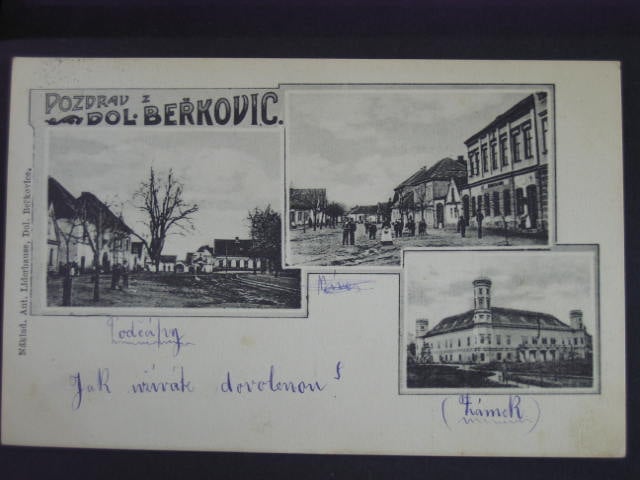 POZDRAV Z
DOL. BEŘKOVIC.
Náklad. Ant. Liderhause, Dol. Beřkovice.
Vodčápsy
Jak užíváte dovolenou?
(Zámek)